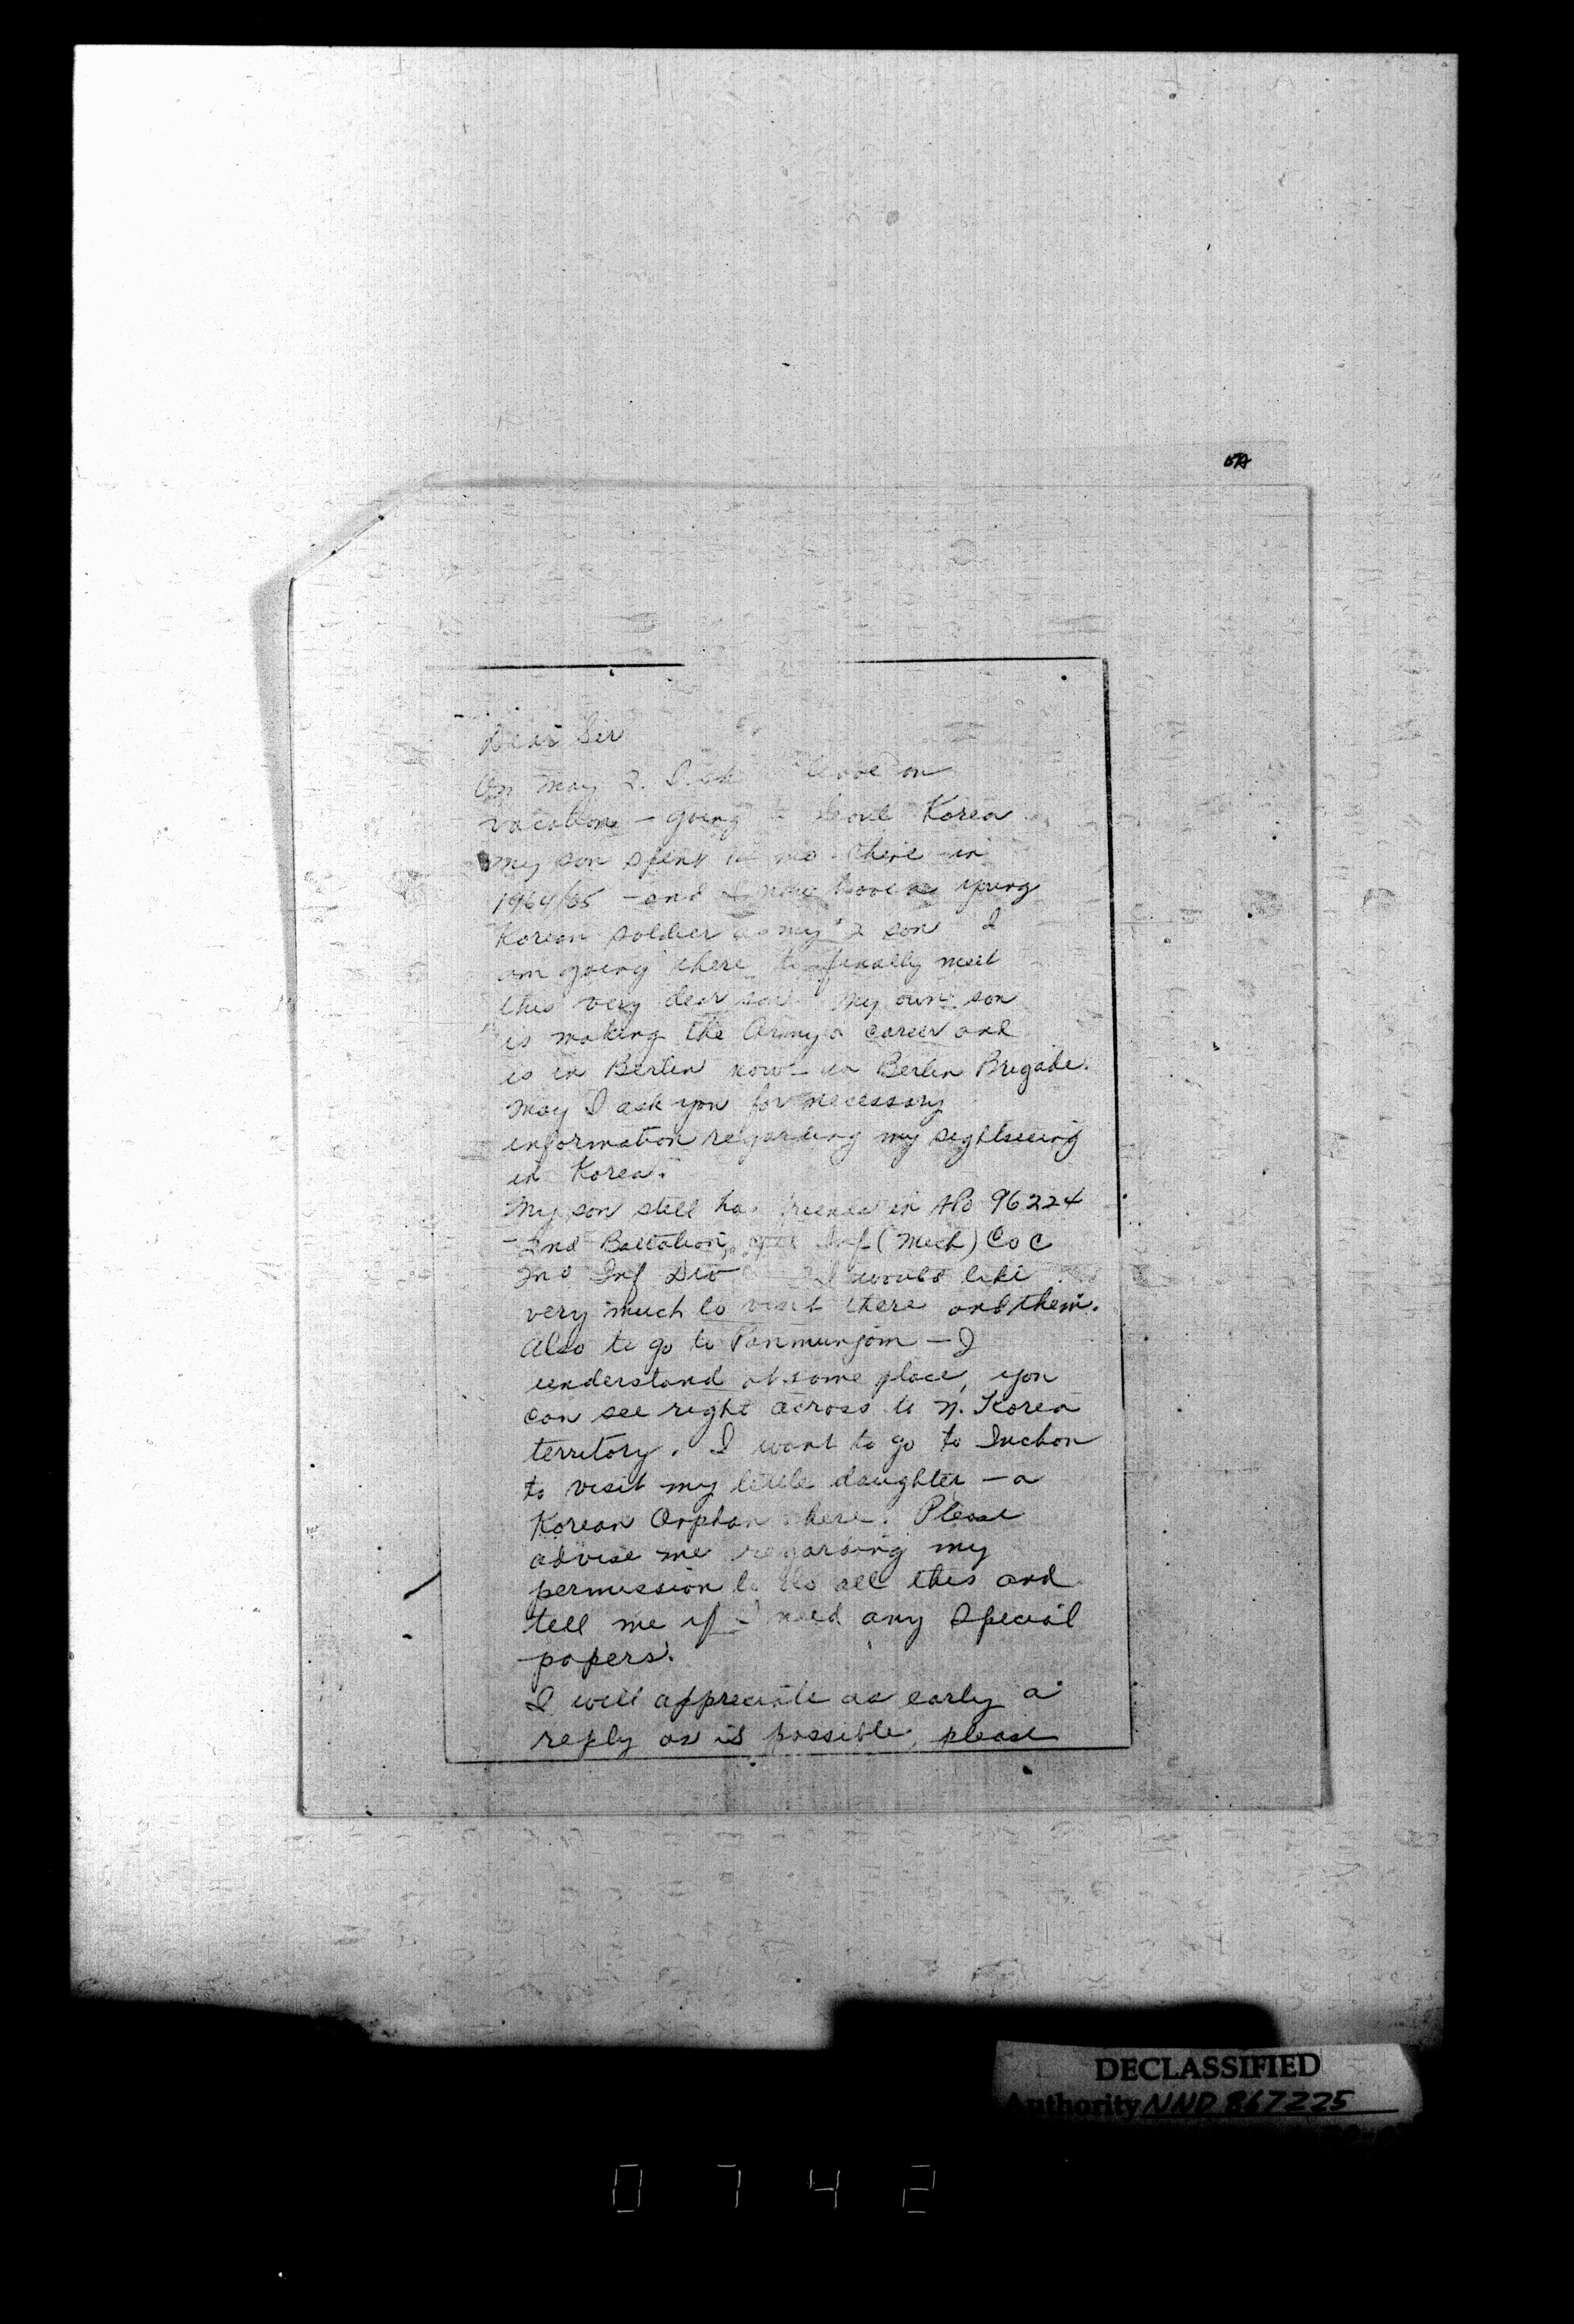 Dear Sir
On May 2. I leave on
vacation - going Seoul Korea
My son spent mo there in
1964/65 - and I now have a young
Korean soldier as my 2 son I
am going there to finally meet
this very dear son My own son
is making the Army a career and
is in Berlin now - in Berlin Brigade.
May I ask you for necessary
information regarding my sightseeing
in Korea.
My son still has friends in APO 96224
2nd Battalion, Inf (Mech) Co C
2nd Inf Div I would like
very much to visit there and them.
Also to go to Panmunjom - I
understand at some place, you
can see right across to N. Korea
territory. I want to go to Inchon
to visit my little daughter - a
Korean Orphan there. Please
advise me regarding my
permission to do all this and
tell me if I need any special
papers.
I will appreciate as early a
reply as is possible, please
DECLASSIFIED
Authority NND 867225
0742